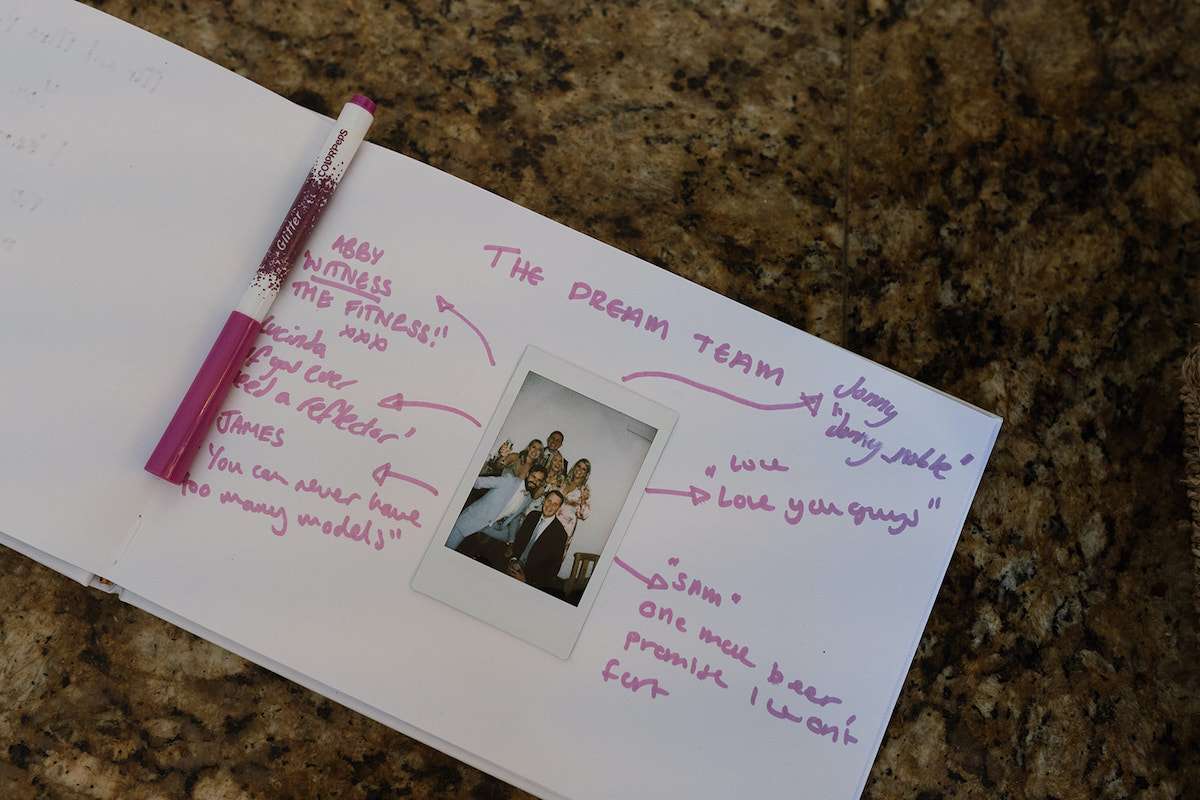 THE DREAM TEAM
ABBY
"WITNESS
THE FITNESS!"
xxxx
Lucinda
if you ever
need a reflector"
JAMES
"You can never have
too many models"
Jonny
"Jonny noble"
Luce
"Love you guys"
"SAM"
One more beer,
promise I won't
fart
Glitter
COLOR'PEPS